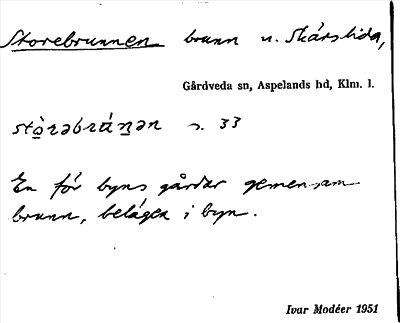 Storebrunnen brunn u. Skärslida,
Gårdveda sn, Aspelands hd, Klm. l.
s. 33
En för byns gårdar gemensam
brunn, belägen i byn.
Ivar Modéer 1951